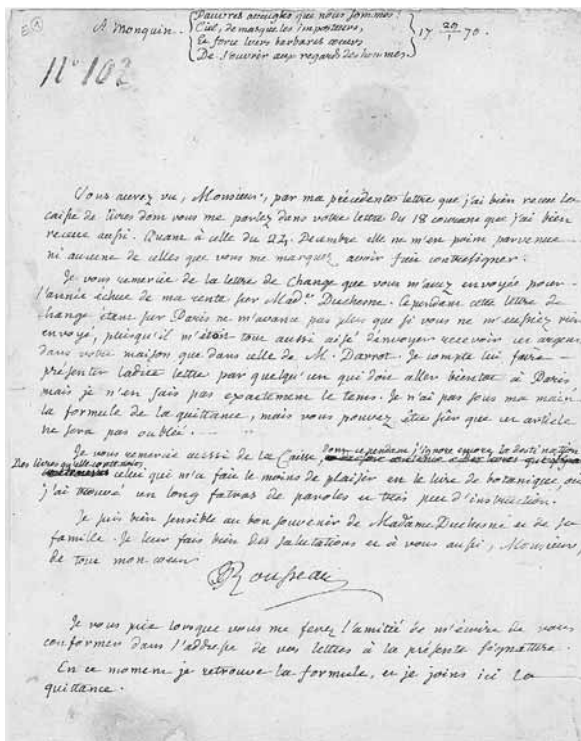 A Monquin. Pauvres aveugles que nous sommes!
Ciel, démasque les imposteurs,
Et force leurs barbares cœurs
De s'ouvrir aux regards des hommes.
17 20/1 70.
N° 102
Vous aurez vu, Monsieur, par ma précédente lettre que j'ai bien receu la
caisse de livres dont vous me parlez dans votre lettre du 18 courant que j'ai bien
receue aussi. Quant à celle du 24. Decembre elle ne m'est point parvenue
ni aucune de celles que vous me marquez avoir fait contresigner.
Je vous remercie de la lettre de change que vous m'avez envoyée pour
l'année échue de ma rente sur Made. Duchesne. Cependant cette lettre de
change étant sur Paris ne m'avance pas plus que si vous ne m'eussiez rien
envoyé, puisqu'il m'étoit tout aussi aisé d'envoyer recevoir cet argent
dans votre maison que dans celle de M. Darrot. Je compte lui faire
présenter ladite lettre par quelqu'un qui doit aller bientot à Paris
mais je n'en sais pas exactement le tems. Je n'ai pas sous ma main
la formule de la quittance, mais vous pouvez être sûr que cet article
ne sera pas oublié.
Je vous remercie aussi de la Caisse, dont cependant j'ignore encore la destination
Des livres qu'elle contenoit,
celui qui m'a fait le moins de plaisir est le livre de botanique, où
j'ai trouvé un long fatras de paroles et très peu d'instruction.
Je suis bien sensible au bon souvenir de Madame Duchesne et de sa
famille. Je leur fais bien des salutations et à vous aussi, Monsieur,
de tout mon cœur
JJRousseau
Je vous prie lorsque vous me ferez l'amitié de m'écrire de vous
conformer dans l'addresse de vos lettres à la présente signature.
En ce moment je retrouve la formule, et je joins ici la
quittance.